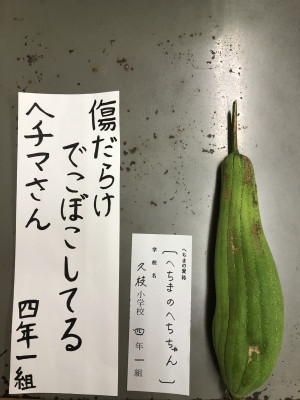 傷だらけ
でこぼこしてる
ヘチマさん
四年一組
へちまの愛称
〔へちまのへちちゃん〕
学校名
久枝小学校 四年一組